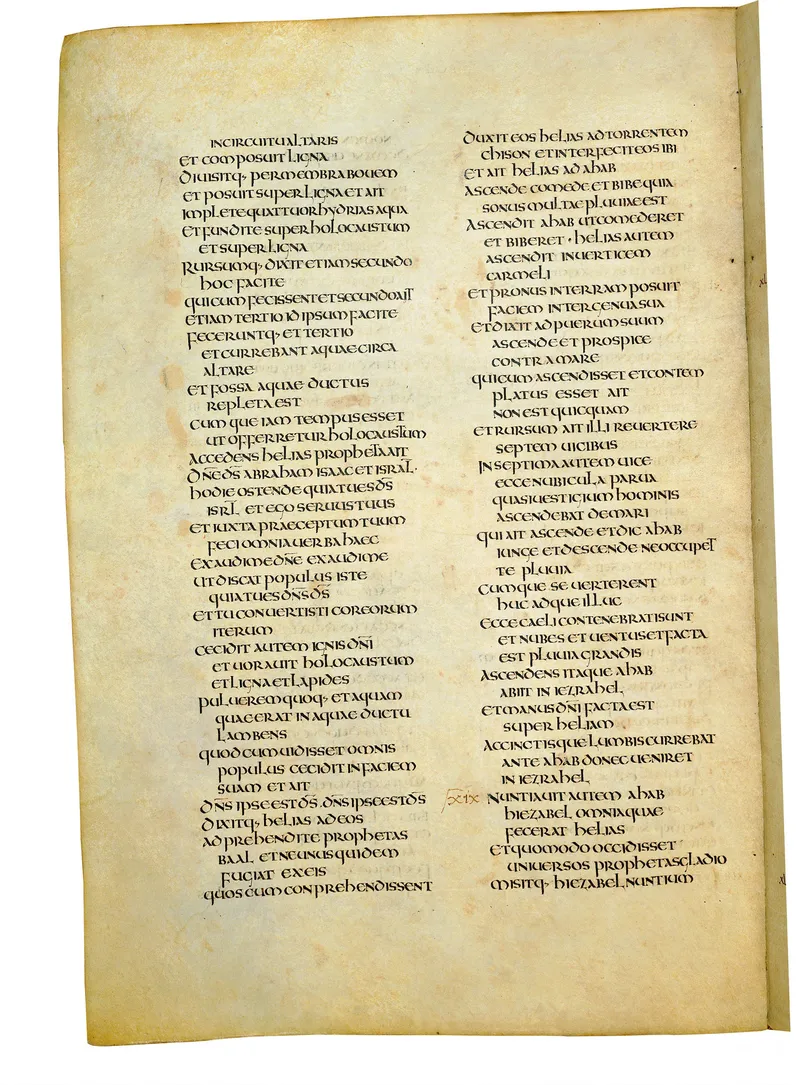 INCIRCUITU ALTARIS
ET COMPOSUIT LIGNA
DIUISITQ; PER MEMBRA BOUEM
ET POSUIT SUPER LIGNA ET AIT
IMPLETE QUATTUOR HYDRIAS AQUA
ET FUNDITE SUPER HOLOCAUSTUM
ET SUPER LIGNA
RURSUMQ; DIXIT ETIAM SECUNDO
HOC FACITE
QUI CUM FECISSENT ET SECUNDO AIT
ETIAM TERTIO ID IPSUM FACITE
FECERUNTQ; ET TERTIO
ET CURREBANT AQUAE CIRCA
ALTARE
ET FOSSA AQUAE DUCTUS
REPLETA EST
CUMQUE IAM TEMPUS ESSET
UT OFFERRETUR HOLOCAUSTUM
ACCEDENS HELIAS PROPHETA AIT
DN̄E D̄S ABRAHAM ISAAC ET ISRAL̄·
HODIE OSTENDE QUIA TU ES D̄S
ISRL̄ ET EGO SERUUS TUUS
ET IUXTA PRAECEPTUM TUUM
FECI OMNIA UERBA HAEC
EXAUDI ME DN̄E EXAUDI ME
UT DISCAT POPULUS ISTE
QUIA TU ES DN̄S D̄S
ET TU CONUERTISTI COR EORUM
ITERUM
CECIDIT AUTEM IGNIS DN̄I
ET UORAUIT HOLOCAUSTUM
ET LIGNA ET LAPIDES
PULUEREM QUOQ; ET AQUAM
QUAE ERAT IN AQUAE DUCTU
LAMBENS
QUOD CUM UIDISSET OMNIS
POPULUS CECIDIT IN FACIEM
SUAM ET AIT
DN̄S IPSE EST D̄S. DN̄S IPSE EST D̄S
DIXITQ; HELIAS AD EOS
ADPREHENDITE PROPHETAS
BAAL ET NE UNUS QUIDEM
FUGIAT EX EIS
QUOS CUM CONPREHENDISSENT
DUXIT EOS HELIAS AD TORRENTEM
CHISON ET INTERFECIT EOS IBI
ET AIT HELIAS AD AHAB
ASCENDE COMEDE ET BIBE QUIA
SONUS MULTAE PLUUIAE EST
ASCENDIT AHAB UT COMEDERET
ET BIBERET · HELIAS AUTEM
ASCENDIT IN UERTICEM
CARMELI
ET PRONUS IN TERRAM POSUIT
FACIEM INTER GENUA SUA
ET DIXIT AD PUERUM SUUM
ASCENDE ET PROSPICE
CONTRA MARE
QUI CUM ASCENDISSET ET CONTEM
PLATUS ESSET AIT
NON EST QUICQUAM
ET RURSUM AIT ILLI REUERTERE
SEPTEM UICIBUS
IN SEPTIMA AUTEM UICE
ECCE NUBICULA PARUA
QUASI UESTIGIUM HOMINIS
ASCENDEBAT DE MARI
QUI AIT ASCENDE ET DIC AHAB
IUNGE ET DESCENDE NE OCCUPET
TE PLUUIA
CUMQUE SE UERTERENT
HUC ADQUE ILLUC
ECCE CAELI CONTENEBRATI SUNT
ET NUBES ET UENTUS ET FACTA
EST PLUUIA GRANDIS
ASCENDENS ITAQUE AHAB
ABIIT IN IEZRAHEL
ET MANUS DN̄I FACTA EST
SUPER HELIAM
ACCINCTISQUE LUMBIS CURREBAT
ANTE AHAB DONEC UENIRET
IN IEZRAHEL
XIX NUNTIAUIT AUTEM AHAB
HIEZABEL OMNIA QUAE
FECERAT HELIAS
ET QUOMODO OCCIDISSET
UNIUERSOS PROPHETAS GLADIO
MISITQ; HIEZABEL NUNTIUM